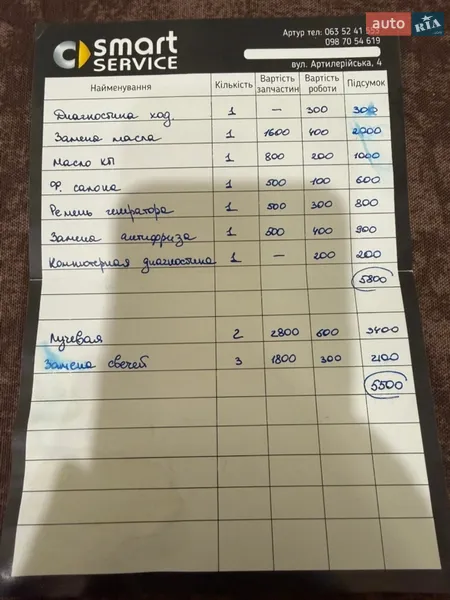 smart
SERVICE
Артур тел: 063 52 41 553
098 70 54 619
auto RIA.com
вул. Артилерійська, 4
Найменування Кількість Вартість запчастин Вартість роботи Підсумок
Диагностика ход. 1 — 300 300
Замена масла 1 1600 400 2000
Масло КП 1 800 200 1000
Ф. салона 1 500 100 600
Ремень генератора 1 500 300 800
Замена антифриза 1 500 400 900
Компютерная диагностика 1 — 200 200
5800
Лучевая 2 2800 600 3400
Замена свечей 3 1800 300 2100
5500